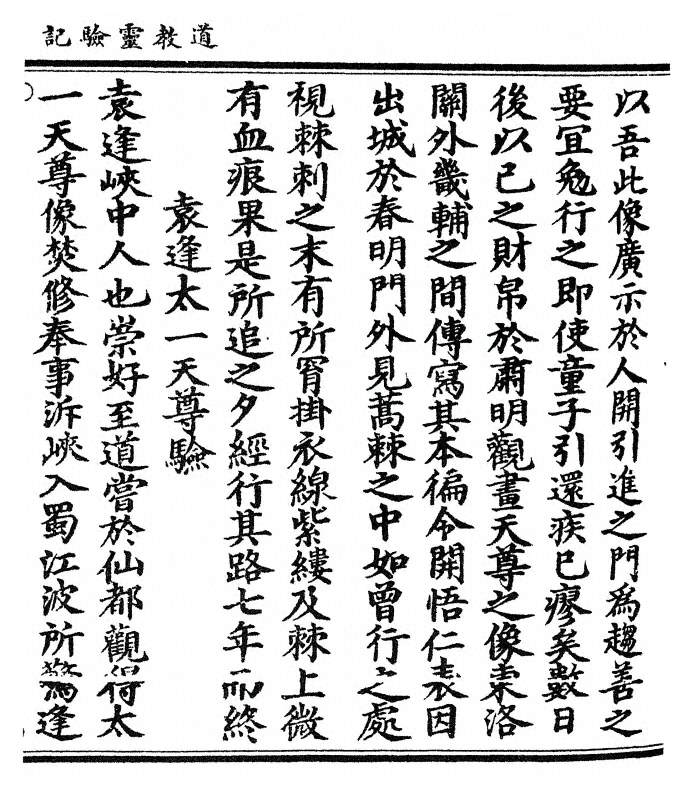 道教靈驗記
以吾此像廣示於人開引進之門爲趨善之
要宜勉行之即使童子引還疾已瘳矣數日
後以已之財帛於肅明觀畫天尊之像東洛
關外畿輔之間傳寫其本徧令開悟仁表因
出城於春明門外見蒿棘之中如曾行之處
視棘刺之末有所罥掛衣線紫縷及棘上微
有血痕果是所追之夕經行其路七年而終
袁逢太一天尊驗
袁逢峽中人也崇好至道嘗於仙都觀得太
一天尊像焚修奉事泝峽入蜀江波所驚逢